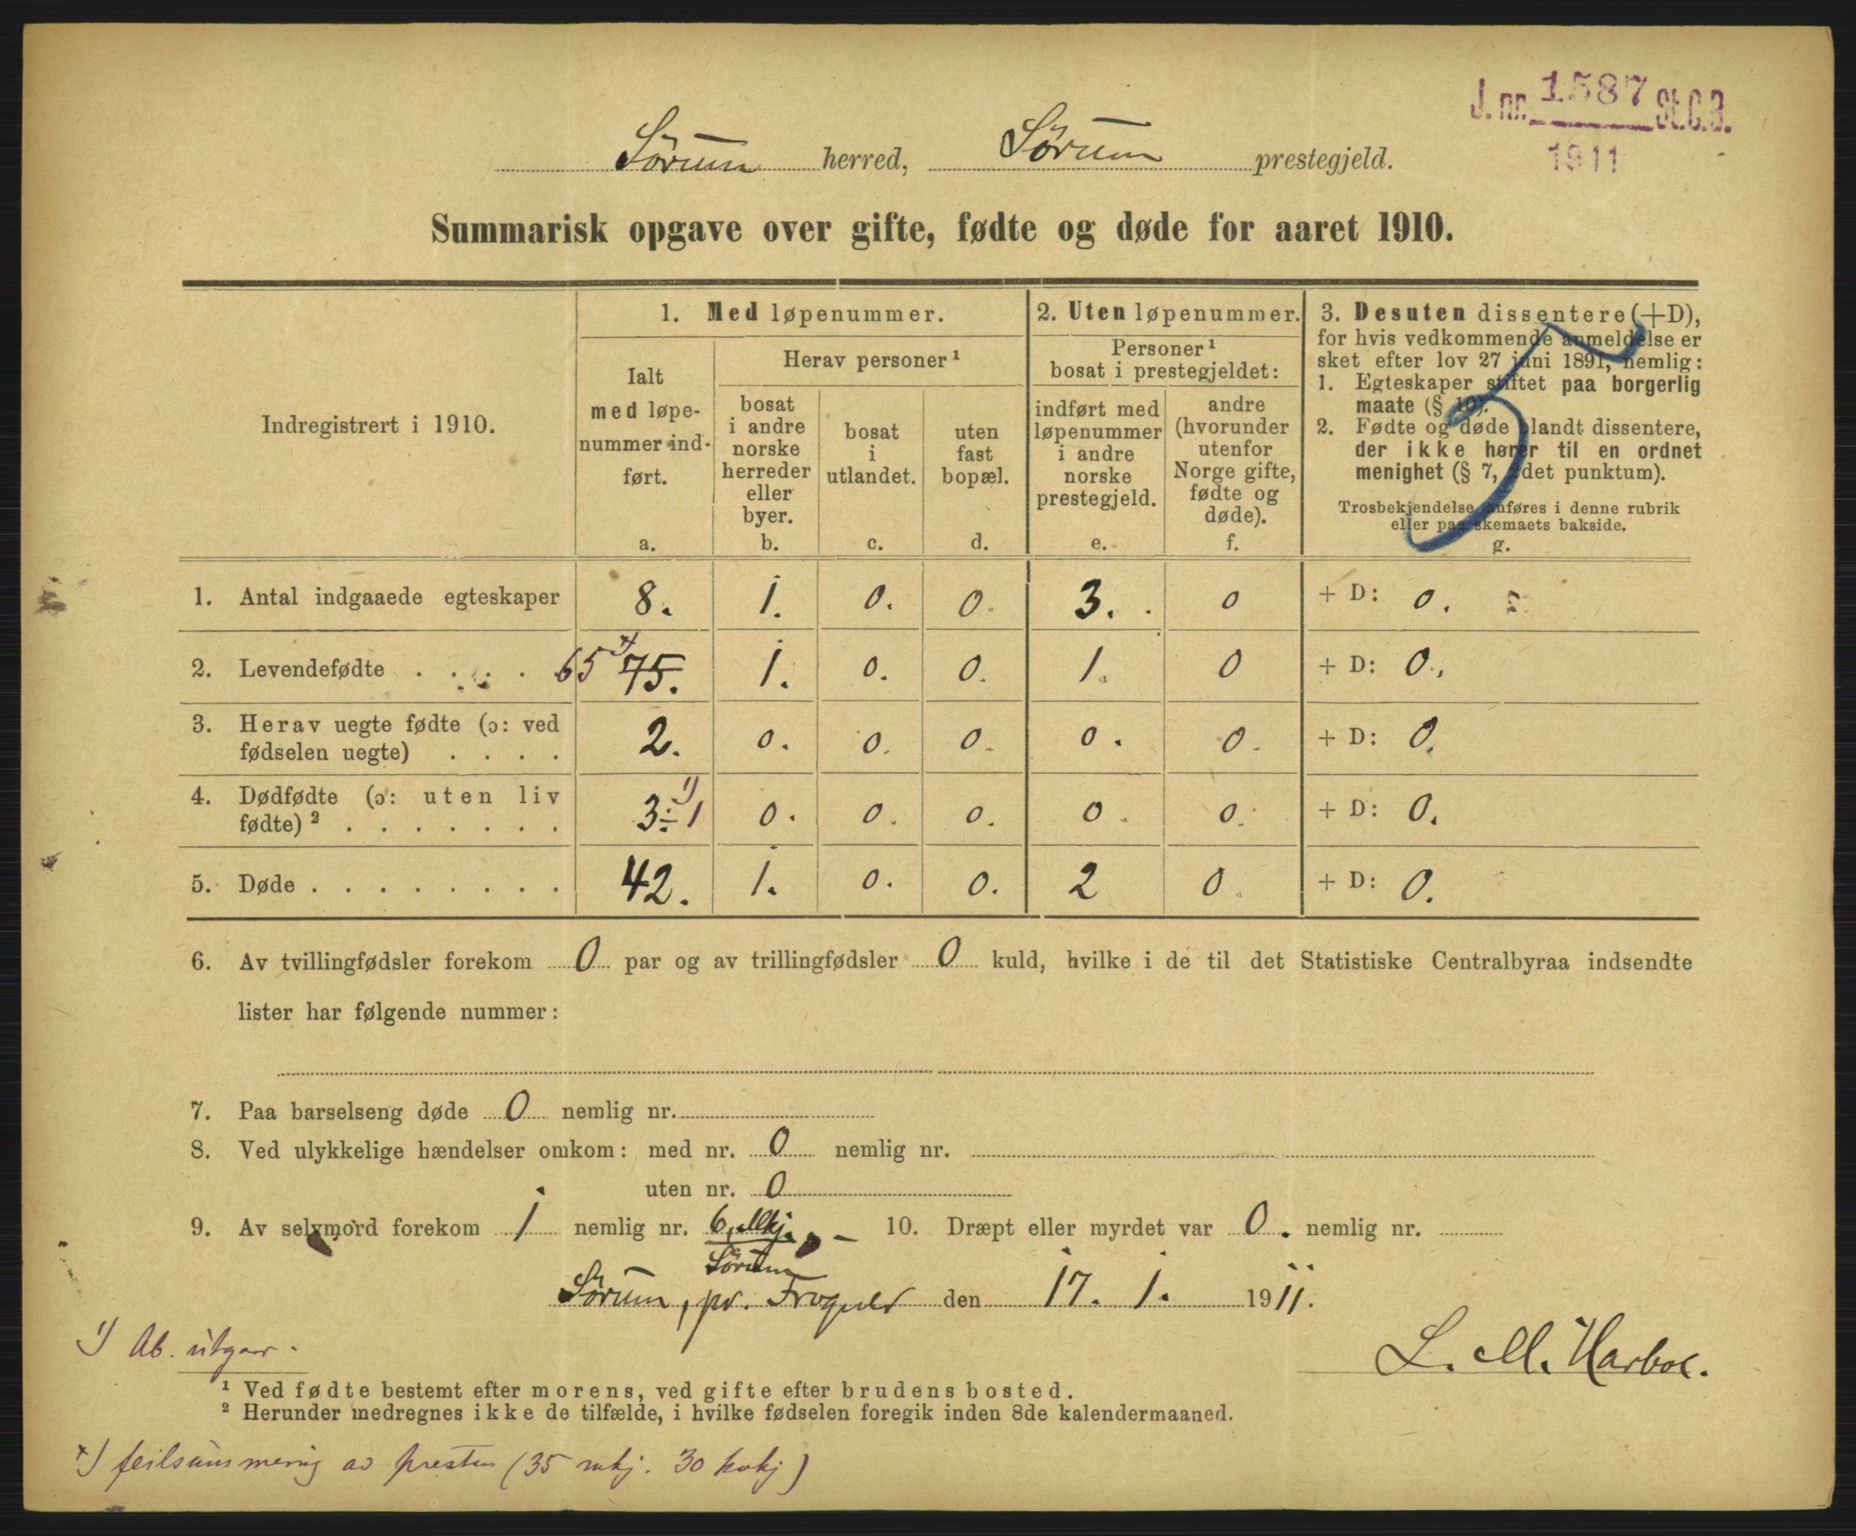 J. nr. 1587 St.C.B.
1911
Sørum herred, Sørum prestegjeld.
Summarisk opgave over gifte, fødte og døde for aaret 1910.
Indregistrert i 1910.
1. Med løpenummer.
Ialt
med løpe-
nummer ind-
ført.
a.
Herav personer ¹
bosat
i andre
norske
herreder
eller
byer.
b.
bosat
i
utlandet.
c.
uten
fast
bopæl.
d.
2. Uten løpenummer.
Personer ¹
bosat i prestegjeldet:
indført med
løpenummer
i andre
norske
prestegjeld.
e.
andre
(hvorunder
utenfor
Norge gifte,
fødte og
døde).
f.
3. Desuten dissentere (+D),
for hvis vedkommende anmeldelse er
sket efter lov 27 juni 1891, nemlig:
1. Egteskaper stiftet paa borgerlig
maate (§ 10).
2. Fødte og døde blandt dissentere,
der ikke hører til en ordnet
menighet (§ 7, 2det punktum).
Trosbekjendelse anføres i denne rubrik
eller paa skemaets bakside.
g.
1. Antal indgaaede egteskaper 8. 1. 0. 0. 3. 0 + D: 0.
2. Levendefødte . . . . 65 ×) 75. 1. 0. 0. 1. 0 + D: 0.
3. Herav uegte fødte (ɔ: ved
fødselen uegte) . . . . 2. 0. 0. 0. 0. 0. + D: 0.
4. Dødfødte (ɔ: uten liv
fødte) ² . . . . . . . 3 ÷ 1 ¹) 0. 0. 0. 0. 0. + D: 0.
5. Døde . . . . . . . . 42. 1. 0. 0. 2 0. + D: 0.
6. Av tvillingfødsler forekom 0 par og av trillingfødsler 0 kuld, hvilke i de til det Statistiske Centralbyraa indsendte
lister har følgende nummer:
7. Paa barselseng døde 0 nemlig nr.
8. Ved ulykkelige hændelser omkom: med nr. 0 nemlig nr.
uten nr. 0
9. Av selvmord forekom 1 nemlig nr. 6, Mkj. 10. Dræpt eller myrdet var 0. nemlig nr.
Sørum
Sørum, pr. Frogner den 17. 1. 1911.
L. M. Harboe.
¹) Ab. utgaar.
¹ Ved fødte bestemt efter morens, ved gifte efter brudens bosted.
² Herunder medregnes ikke de tilfælde, i hvilke fødselen foregik inden 8de kalendermaaned.
×) feilsummering av presten (35 mkj. 30 kvkj)